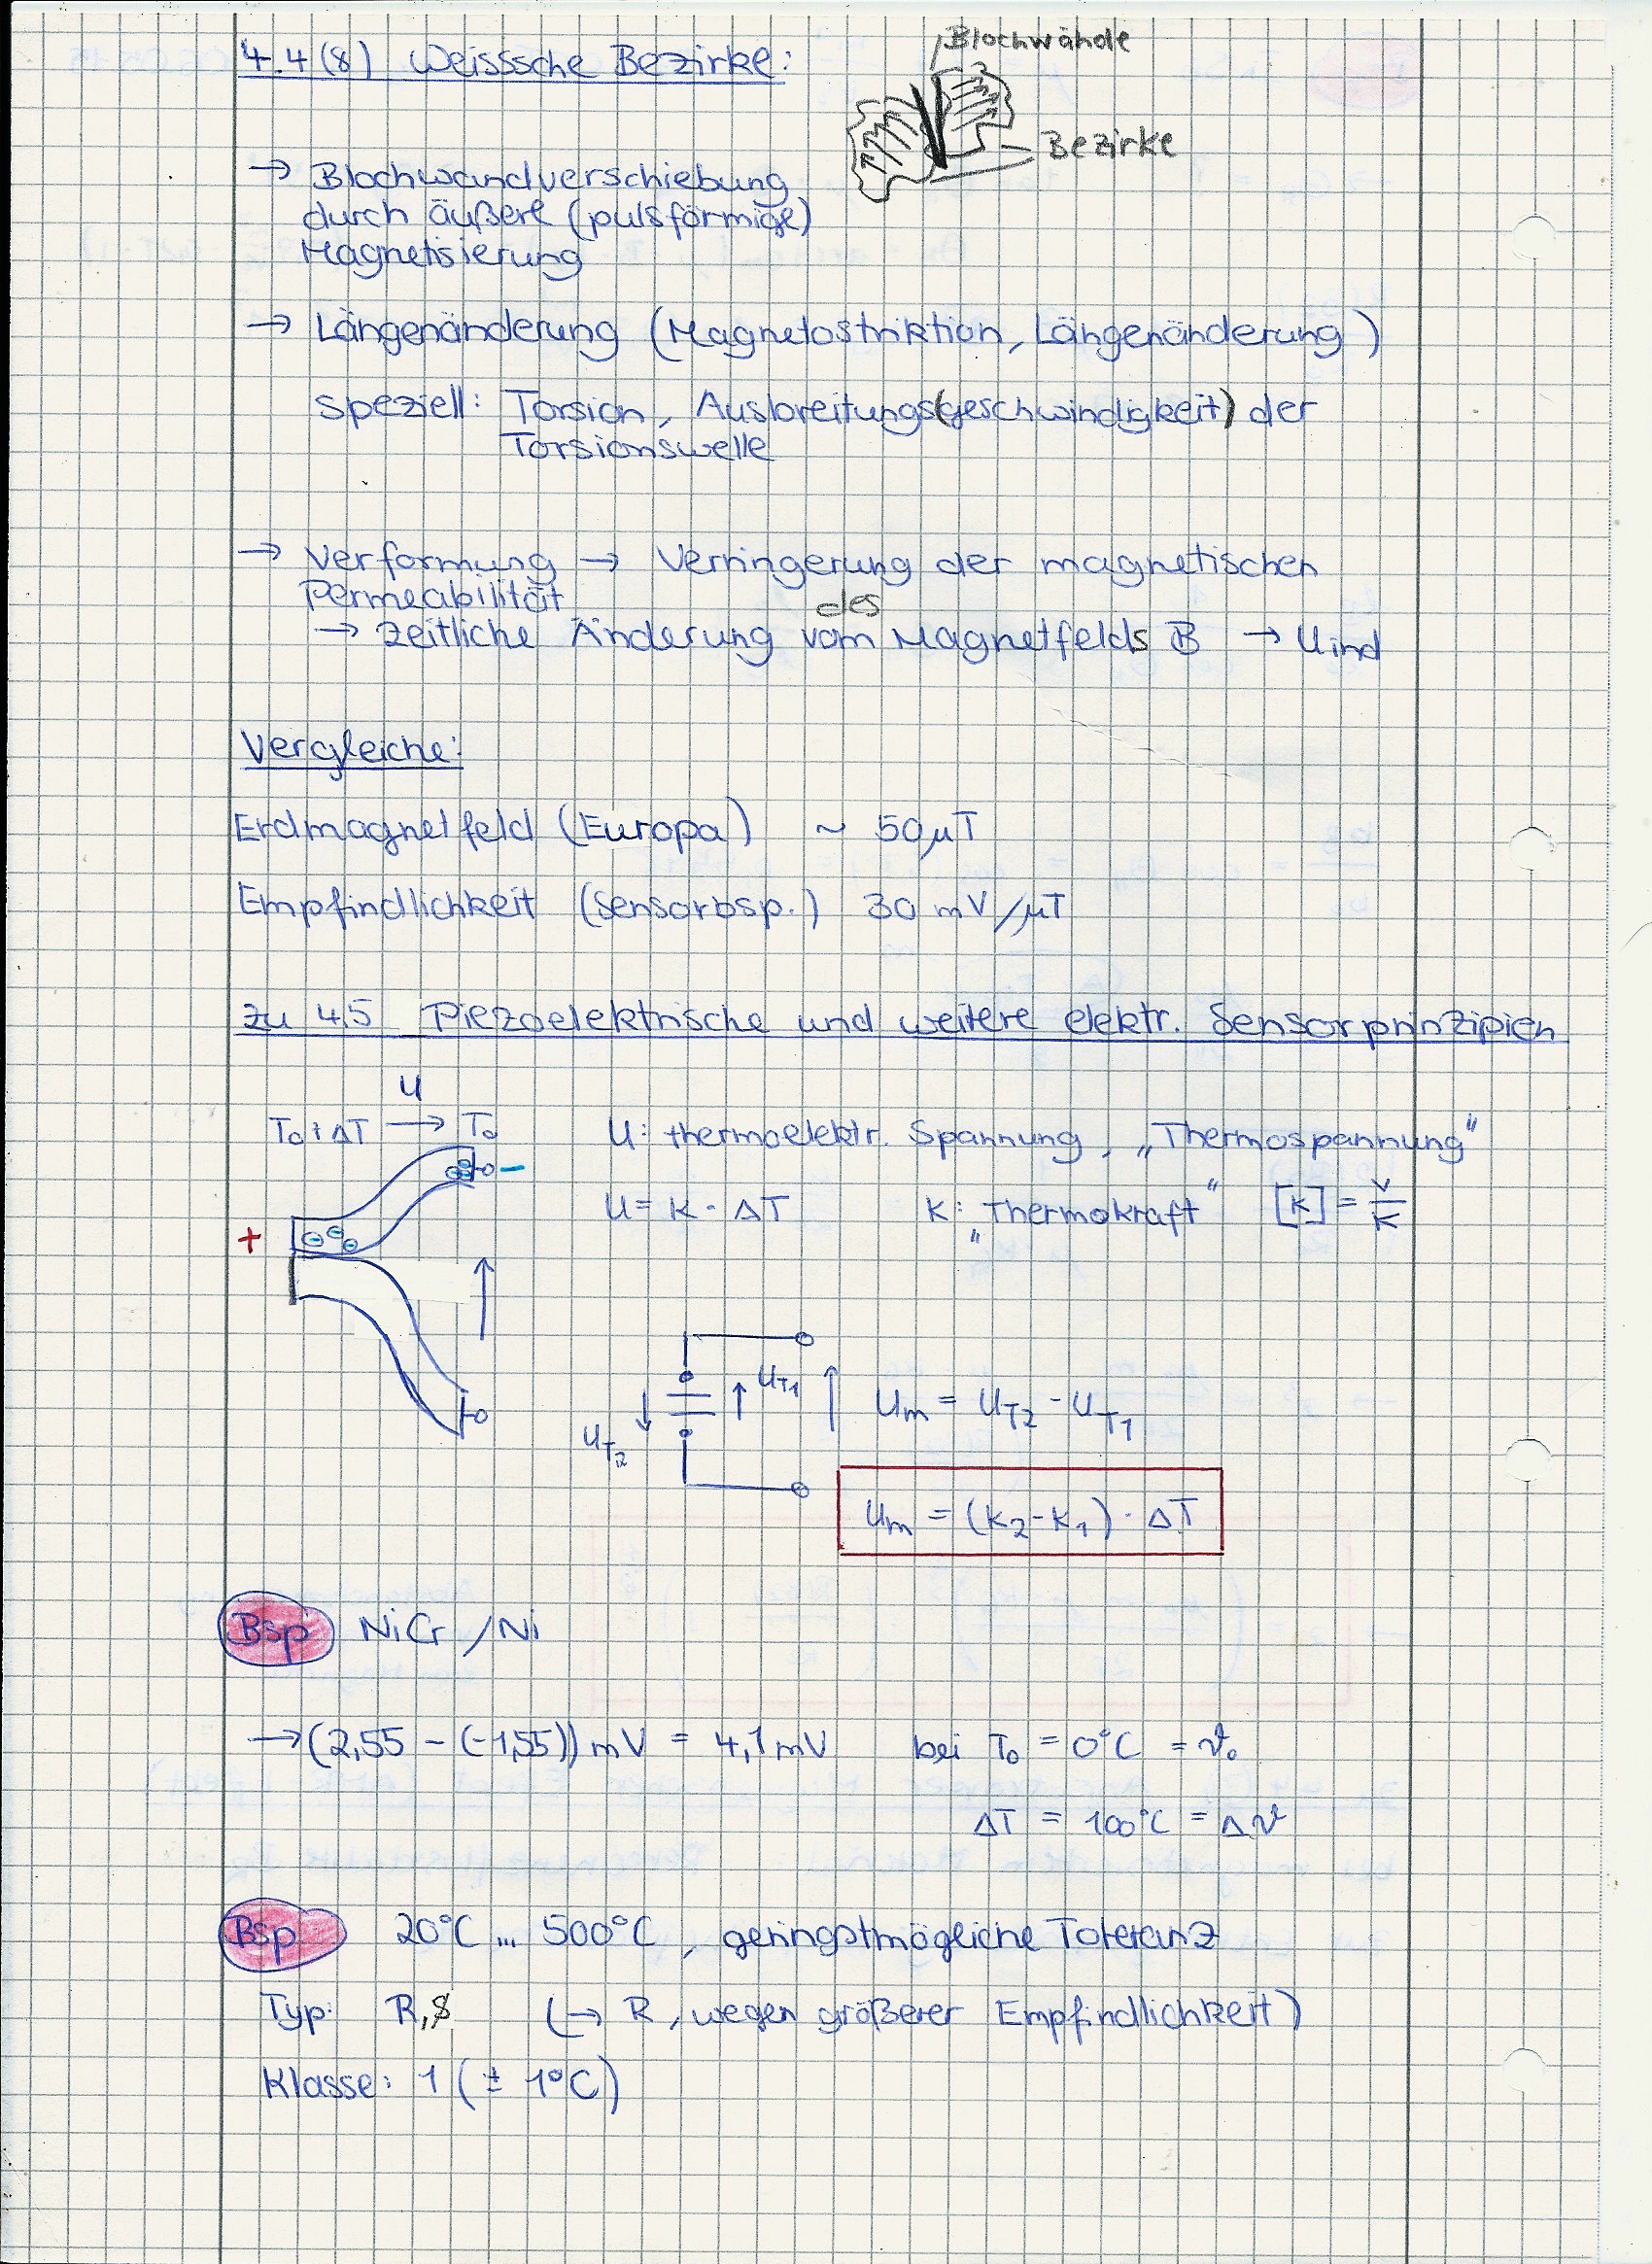 4.4(8) Weisssche Bezirke:
Blochwände
Bezirke
→ Blochwandverschiebung
durch äußere (pulsförmige)
Magnetisierung
→ Längenänderung (Magnetostriktion, Längenänderung)
speziell: Torsion, Ausbreitungs(geschwindigkeit) der
Torsionswelle
→ Verformung → Verringerung der magnetischen
Permeabilität
des
→ zeitliche Änderung vom Magnetfelds B → Uind
Vergleiche:
Erdmagnetfeld (Europa) ~ 50µT
Empfindlichkeit (Sensorbsp.) 30 mV/µT
zu 4.5 Piezoelektrische und weitere elektr. Sensorprinzipien
U
T₀+ΔT → T₀
U: thermoelektr. Spannung, „Thermospannung"
U = K · ΔT K: „Thermokraft" [K] = V/K
+ -
U_T1
U_T2
U_m = U_T2 - U_T1
U_m = (K₂-K₁) · ΔT
Bsp NiCr/Ni
→ (2,55 - (-1,55)) mV = 4,1 mV bei T₀ = 0°C = ϑ₀
ΔT = 100°C = Δϑ
Bsp 20°C ... 500°C, geringstmögliche Toleranz
Typ: R,S (→ R, wegen größerer Empfindlichkeit)
Klasse: 1 (± 1°C)